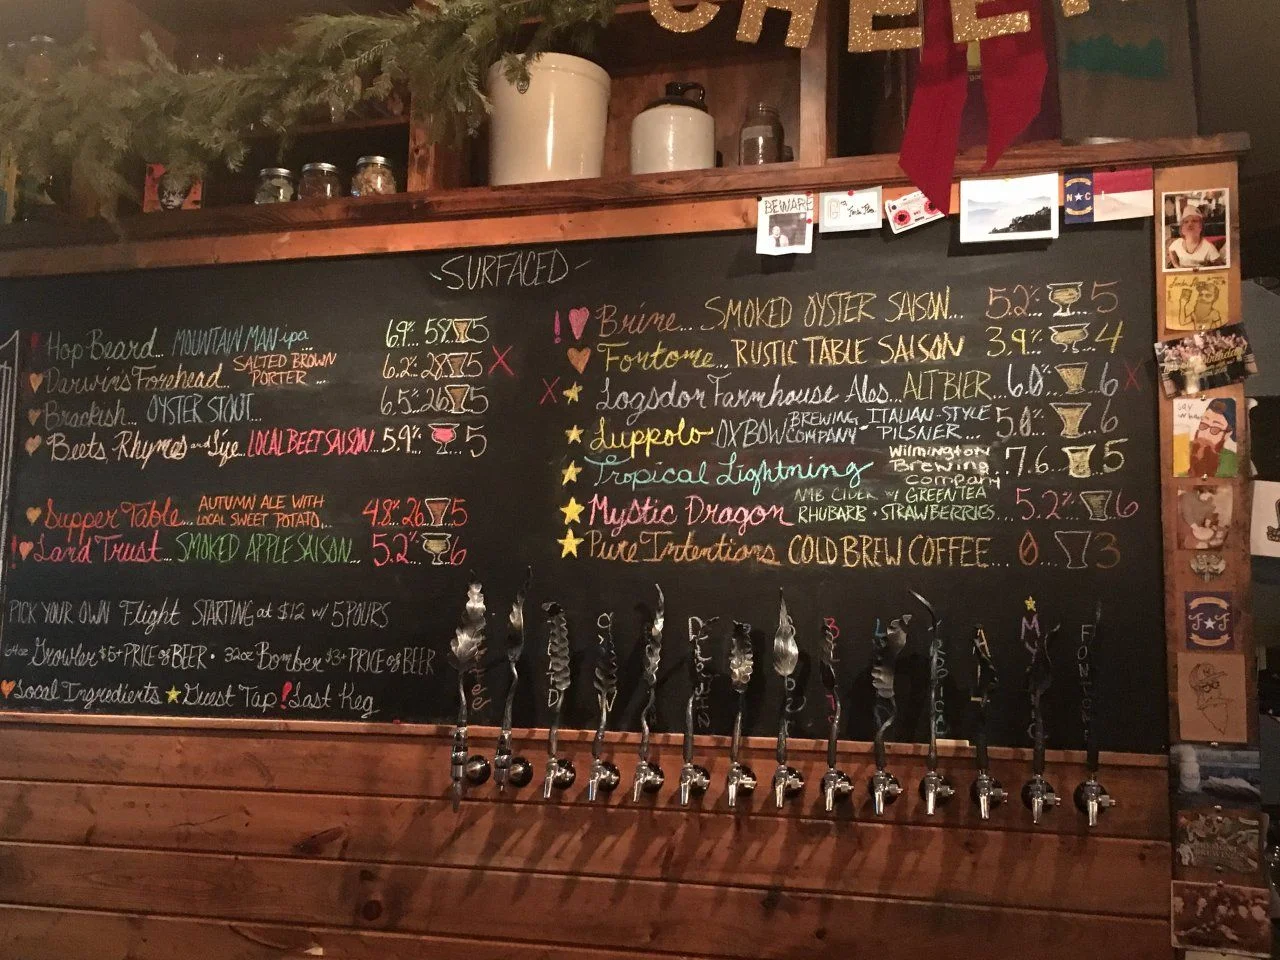 CHEE
BEWARE
N C
~SURFACED~
! Hop Beard... MOUNTAIN MAN ipa 6.9% 58 5
Darwin's Forehead... SALTED BROWN PORTER ... 6.2% 28 5 X
Brackish... OYSTER STOUT... 6.5% 26 5
Beets, Rhymes and Life LOCAL BEET SAISON... 5.9% 5
Supper Table... AUTUMN ALE WITH LOCAL SWEET POTATO... 4.8% 26 5
! Land Trust... SMOKED APPLE SAISON... 5.2% 6
PICK YOUR OWN Flight STARTING at $12 w/ 5 POURS
64oz Growler $5 + PRICE of BEER • 32oz Bomber $3 + PRICE of BEER
Local Ingredients ★ Guest Tap ! Last Keg
! Brine... SMOKED OYSTER SAISON... 5.2% 5
Fontome... RUSTIC TABLE SAISON 3.9% 4
X ★ Logsdon Farmhouse Ales... ALTBIER... 6.0% 6 X
★ Luppolo OXBOW BREWING COMPANY • ITALIAN-STYLE PILSNER... 5.0% 6
★ Tropical Lightning Wilmington Brewing Company ... 7.6 5
★ Mystic Dragon NMB CIDER w/ GREEN TEA RHUBARB • STRAWBERRIES... 5.2% 6
★ Pure Intentions COLD BREW COFFEE... 0 3
F F